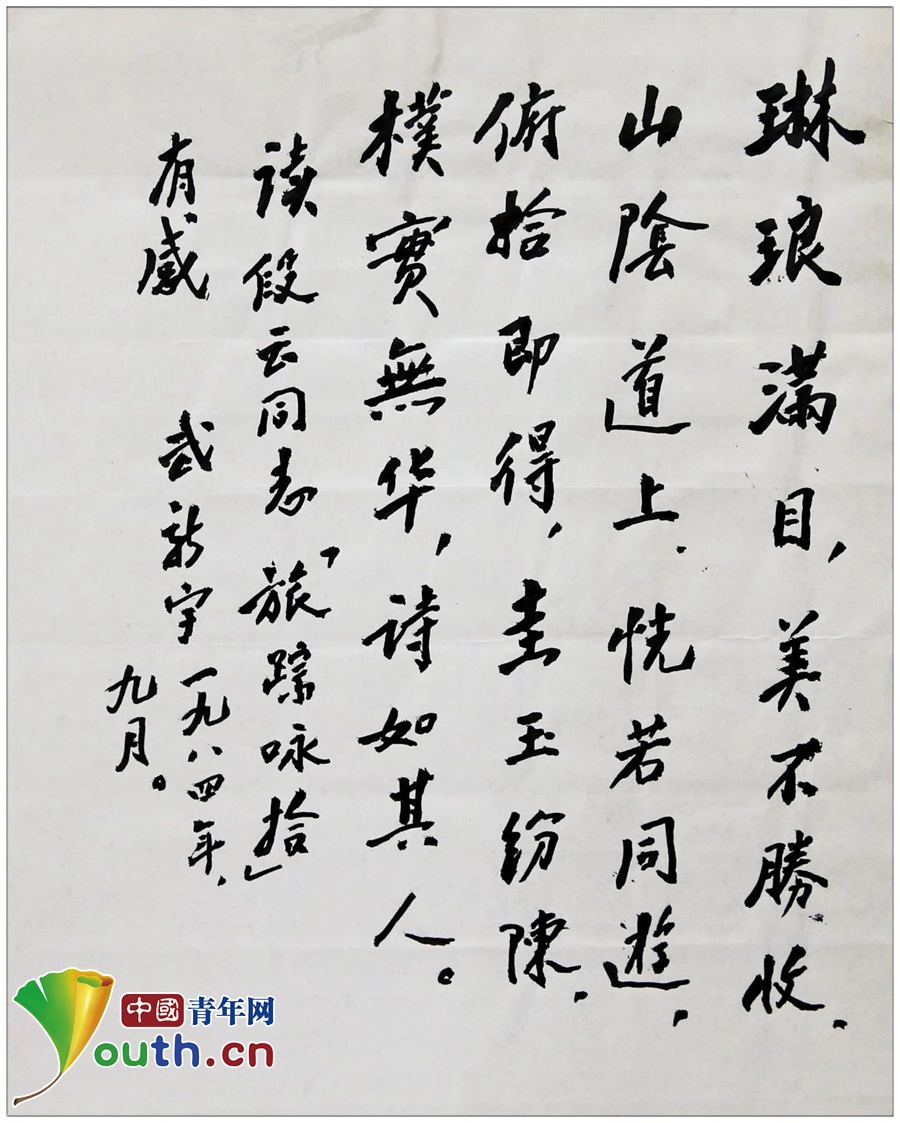 琳琅滿目，美不勝收．
山陰道上．恍若同遊，
俯拾即得，圭玉纷陳．
樸實無华，诗如其人。
读段云同志「旅踪咏拾」
有感
武新宇 一九八四年，
九月。
中國青年网
Youth.cn